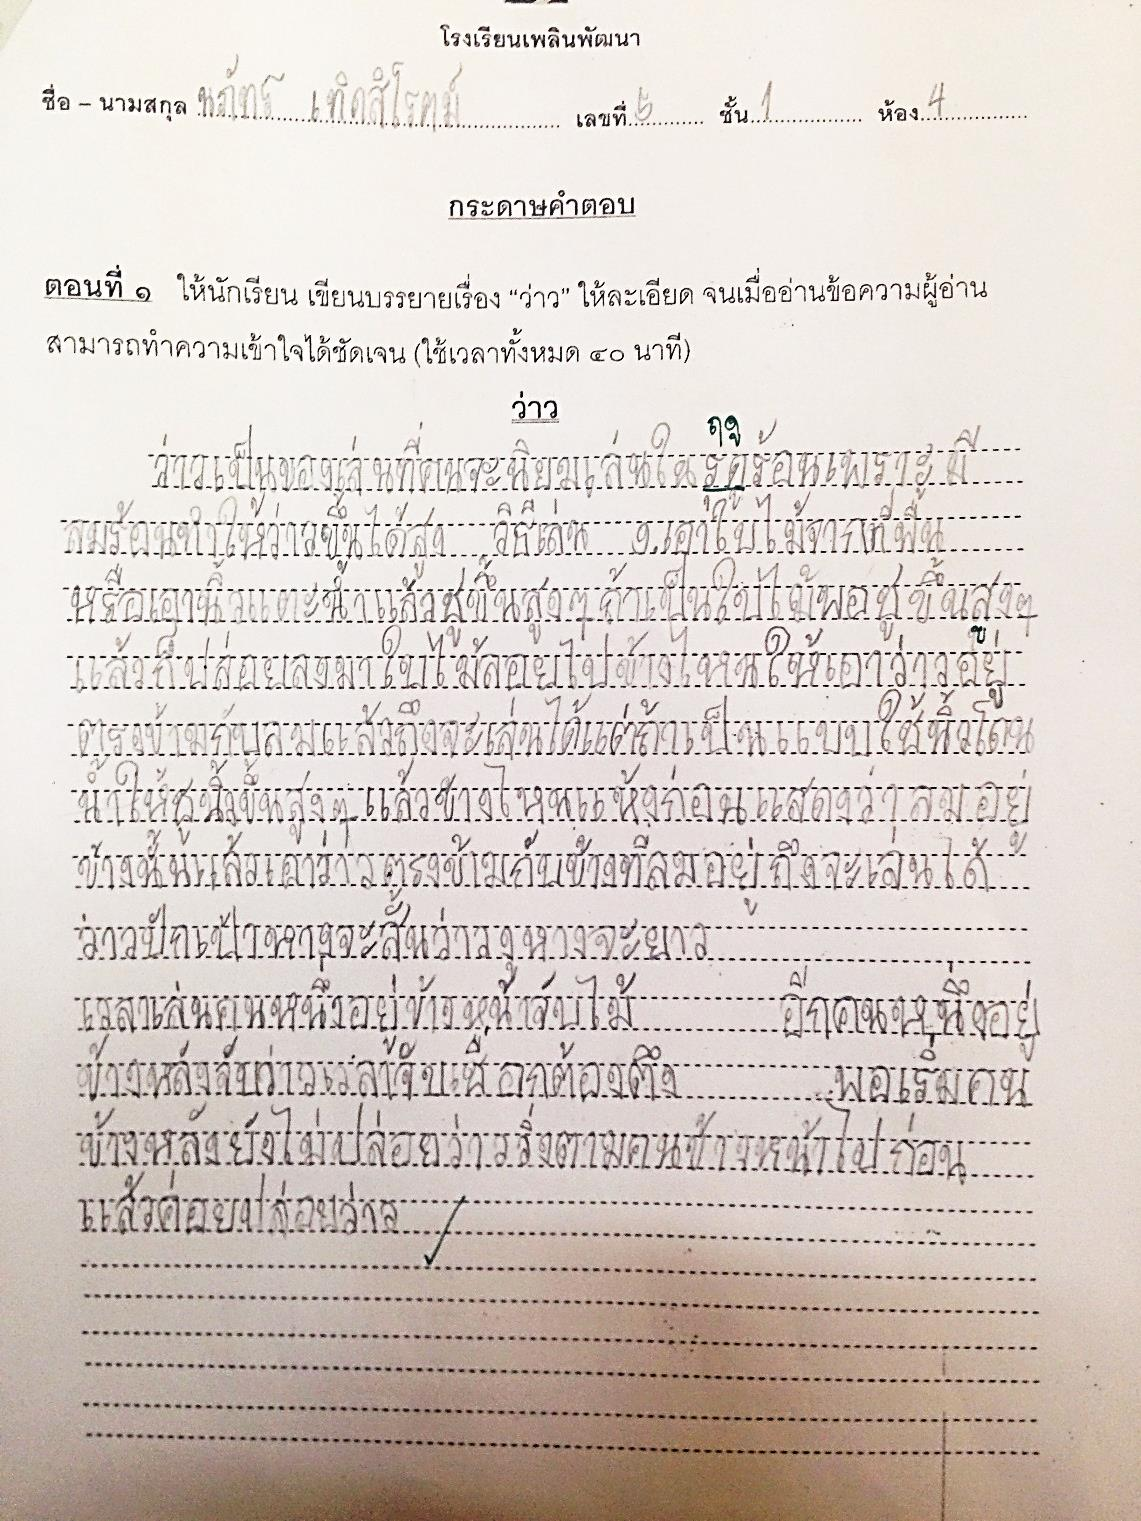 โรงเรียนเพลินพัฒนา
ชื่อ – นามสกุล นภัทร์ เทิดสิโรตม์ เลขที่ 5 ชั้น 1 ห้อง 4
กระดาษคำตอบ
ตอนที่ ๑ ให้นักเรียน เขียนบรรยายเรื่อง “ว่าว” ให้ละเอียด จนเมื่ออ่านข้อความผู้อ่าน
สามารถทำความเข้าใจได้ชัดเจน (ใช้เวลาทั้งหมด ๔๐ นาที)
ว่าว
ฤดู
ว่าวเป็นของเล่นที่คนจะนิยมเล่นในรุดูร้อนเพราะมี
ลมร้อนทำให้ว่าวขึ้นได้สูง วิธีเล่น ๑.เอาใบไม้จากที่พื้น
หรือเอานิ้วแตะน้ำแล้วชูขึ้นสูงๆถ้าเป็นใบไม้พอชูขึ้นสูงๆ
แล้วก็ปล่อยลงมาใบไม้ลอยไปข้างไหนให้เอาว่าวอยู่
ตรงข้ามกับลมแล้วถึงจะเล่นได้แต่ถ้าเป็นแบบใช้นิ้วโดน
น้ำให้ชูนิ้วขึ้นสูงๆแล้วข้างไหนแห้งก่อนแสดงว่าลมอยู่
ข้างนั้นแล้วเอาว่าวตรงข้ามกับข้างที่ลมอยู่ถึงจะเล่นได้
ว่าวปักเป้าหางจะสั้นว่าวงูหางจะยาว
เวลาเล่นคนหนึ่งอยู่ข้างหน้าจับไม้ อีกคนหนึ่งอยู่
ข้างหลังจับว่าวเวลาจับเชือกต้องตึง พอเริ่มคน
ข้างหลังยังไม่ปล่อยว่าววิ่งตามคนข้างหน้าไปก่อน
แล้วค่อยปล่อยว่าว